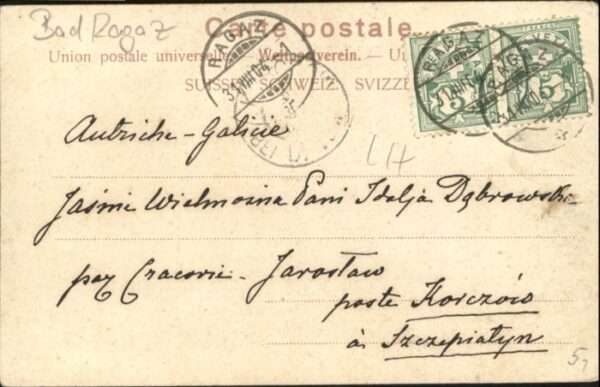 Bad Ragaz
Carte postale
Union postale universelle. — Weltpostverein. —
SUISSE. SCHWEIZ. SVIZZ
RAGAZ
RAGAZ
RAGAZ
5
5
Autriche - Galicie
Jaśnie Wielmożna Pani Idalja Dąbrowska
par Cracovie - Jarosław
poste Korczów
à Szczepiatyn
5,